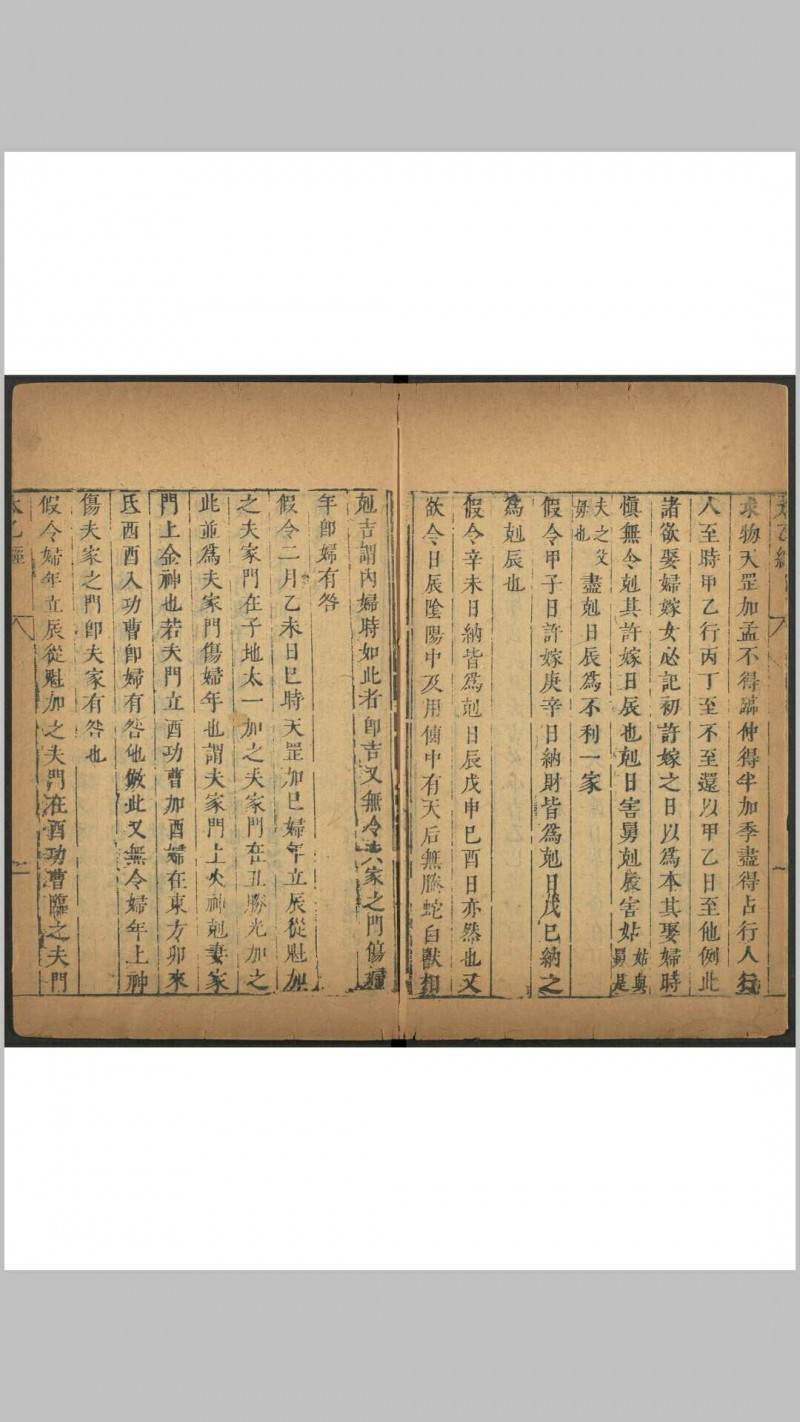 求物天罡加孟不得歸仲得半加季盡得占行人欲
人至時甲乙行丙丁至不至還以甲乙日至他例此
諸欲娶婦嫁女必記初許嫁之日以為本其娶婦時
慎無令剋其許嫁日辰也剋日害舅剋辰害姑姑與舅是
夫之父母也盡剋日辰為不利一家
假令甲子日許嫁庚辛日納財皆為剋日戊巳納之
為剋辰也
假令辛未日納皆為剋日辰戊申巳酉日亦然也又
欲令日辰陰陽中及用傳中有天后無螣蛇白獸相
剋吉謂內婦時如此者即吉又無令 家之門傷
年即婦有咎
假令二月乙未日巳時天罡加巳婦年立辰從魁加
之夫家門在子地太一加之夫家門在丑勝光加之
此並為夫家門傷婦年也謂夫家門上火神剋妻家
門上金神也若夫門立酉功曹加酉婦在東方卯來
氐酉酉入功曹即婦有咎他倣此又無令婦年上神
傷夫家之門即夫家有咎也
假令婦年立辰從魁加之夫門在酉功曹臨之夫門
太乙經 八 一